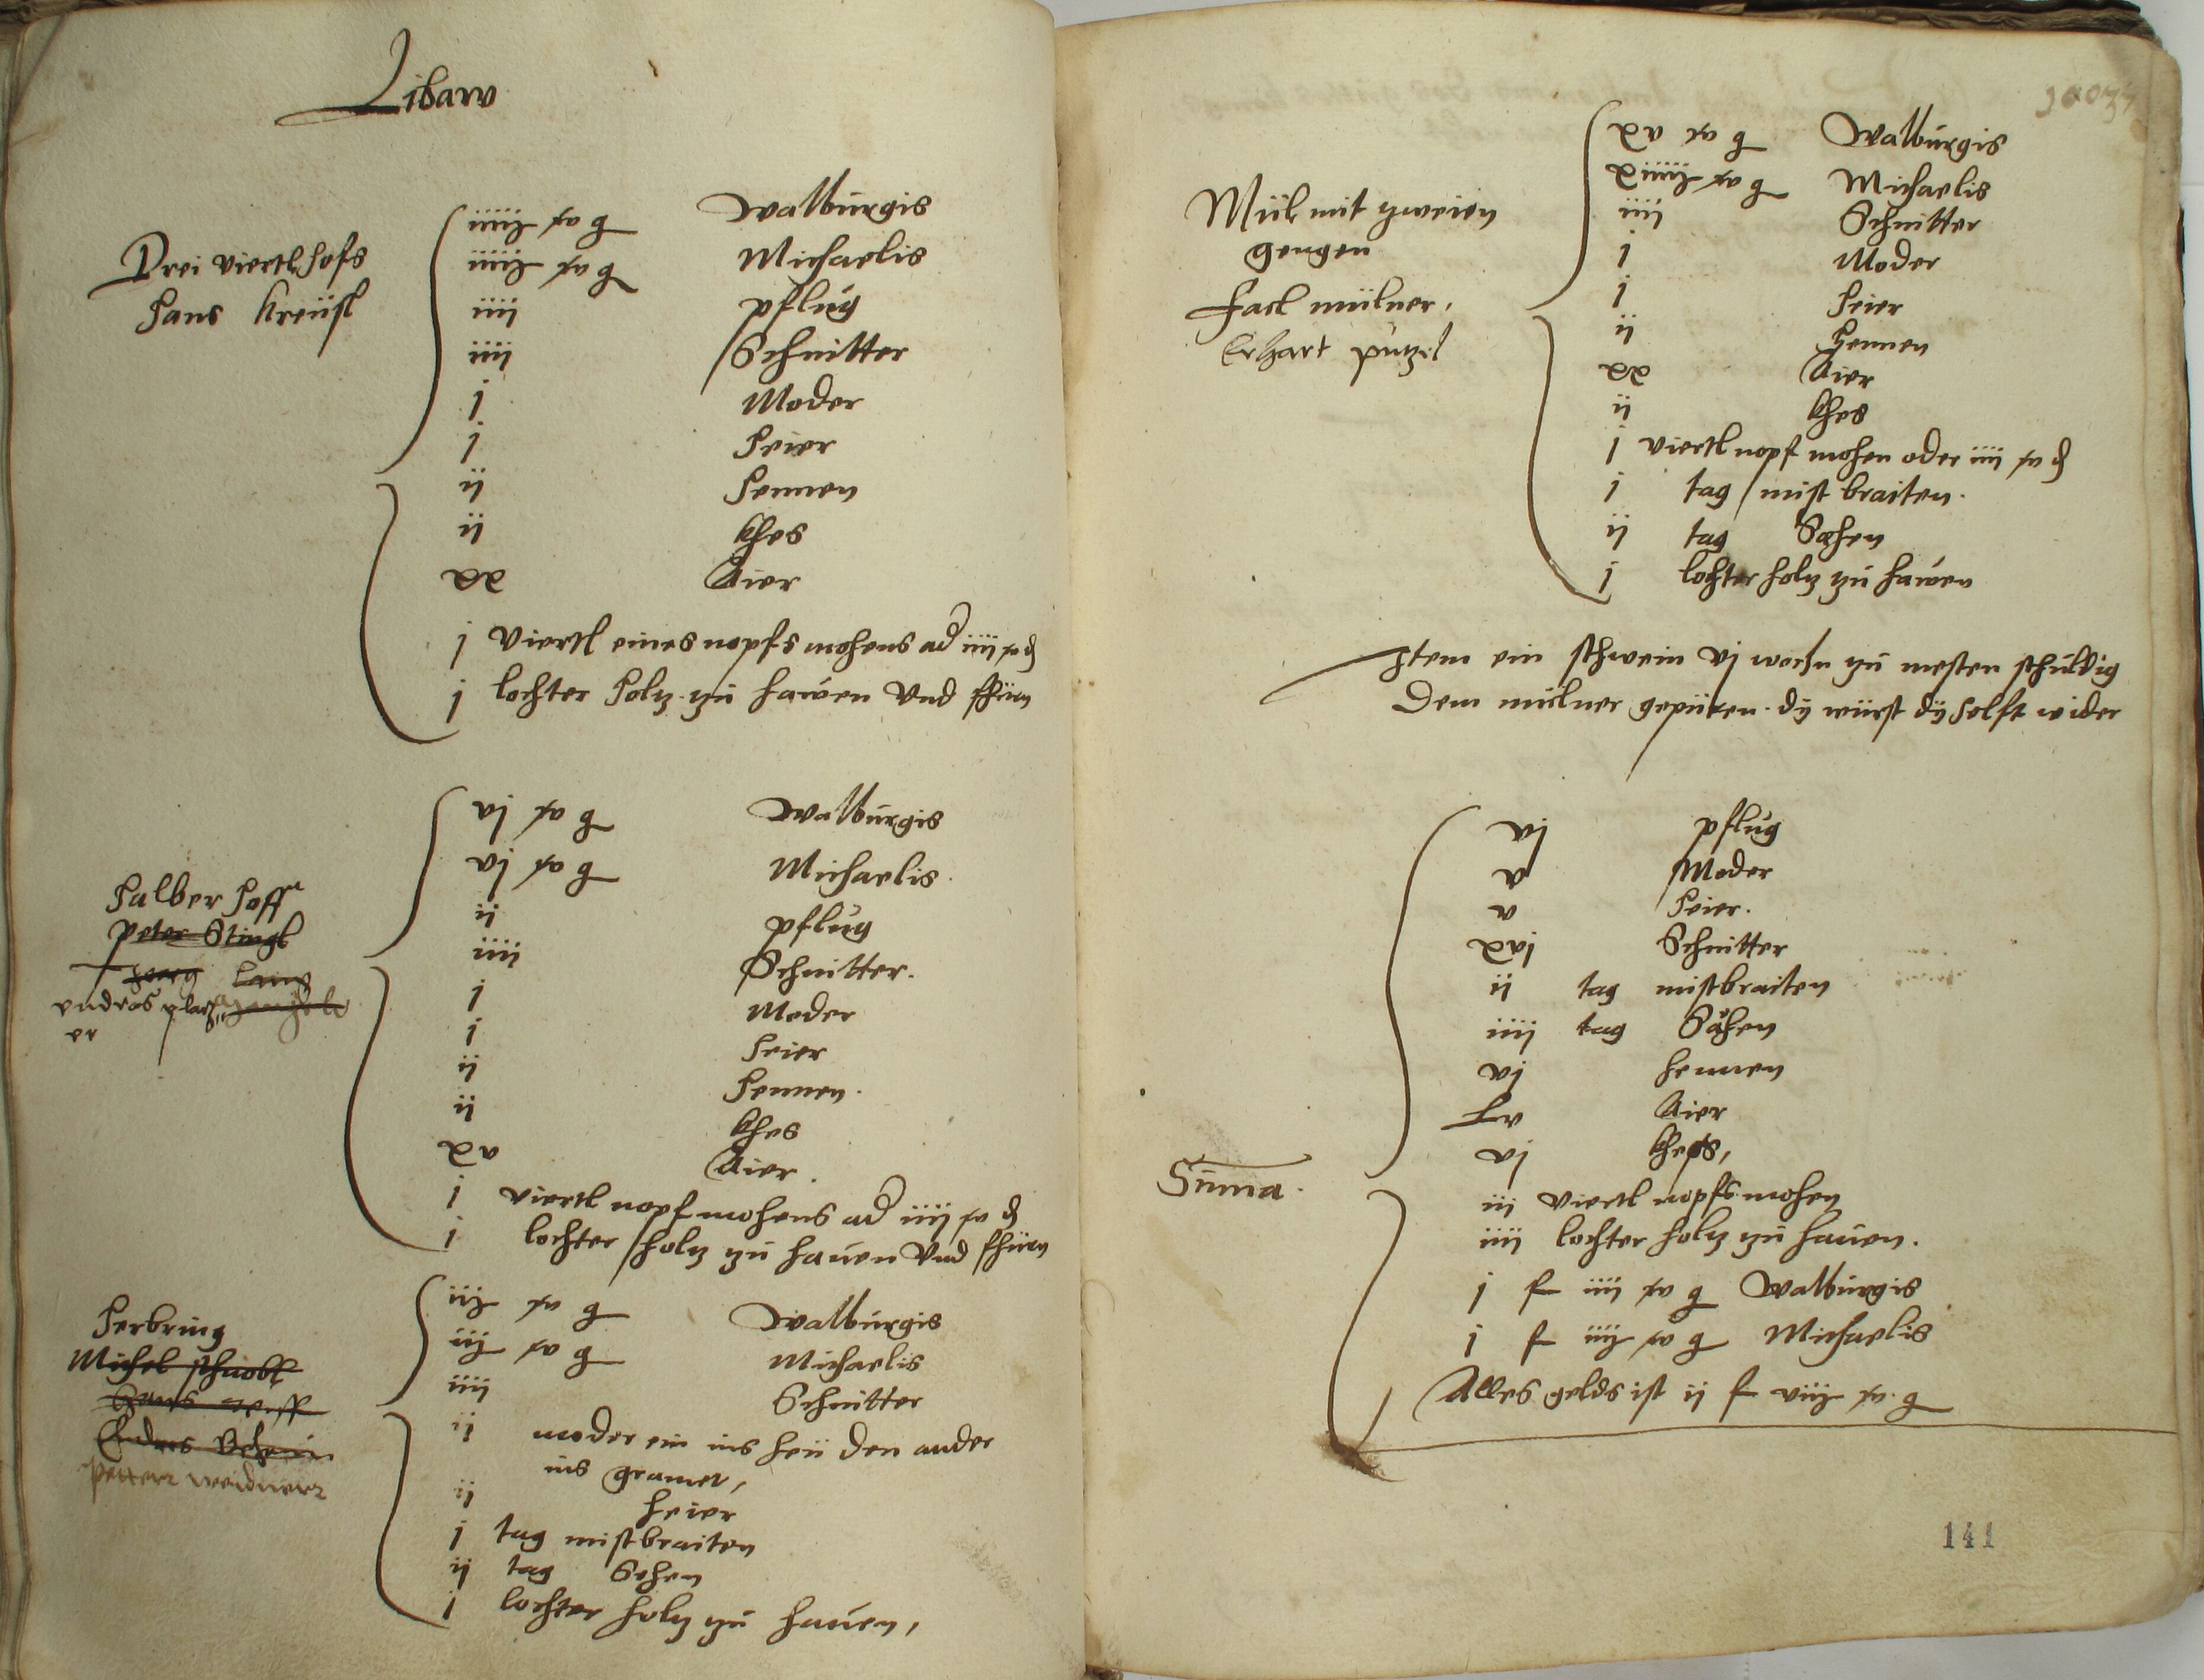 Libaw
Drei viertl hofs
Hans Kreüsl
iiiij ß g Walburgis
iiiij ß g Michaelis
iiij pflug
iiij Schnitter
j Moder
j Heier
ij Hennen
ij khes
xx Aier
j viertl eines nopfs mohens ad iiij ß d
j lochter holz zu hawen vnd fhürn
Halber Hoff
Peter Stingl
Lang
endres
er
vj ß g Walburgis
vj ß g Michaelis.
ij pflug
iiij Schnitter.
j Moder
j Heier
ij Hennen.
ij khes
xv Aier.
j viertl nopf mohens ad iiij ß d
j lochter holz zu hauen vnd fhürn
Herbring
Michel schnobl
Hans
Endres
Petterr weidnerr
iij ß g Walburgis
iij ß g Michaelis
iiij Schnitter
ij moder ein ins heü den ander
ins gramet,
ij heier
j tag mistbraiten
ij tag Sehen
j lochter holz zu hauen,
Mül mit zweien
gengen
Hacl mülner,
Erhart putzel
xv ß g Walburgis
xiiiij ß g Michaelis
iiij Schnitter
j Moder
j Heier
ij Hennen
xx Aier
ij khes
j viertl nopf mohen oder iiij ß d
j tag mist braiten.
ij tag Sehen
j lochter holz zu hawen
Item ein schwein vj wochn zu mesten schuldig
Dem mülner gepüren. dy würst dy helft wider
Suma.
vj pflug
v Moder
v Heier.
xvj Schnitter
ij tag mistbraiten
iiij tag Sähen
vj hennen
lv Aier
vj kheß,
iij viertl nopfs mohen
iiij lochter holz zu hauen.
j f iiij ß g Walburgis
j f iiij ß g Michaelis
Alles gelds ist ij f viij ß g
141